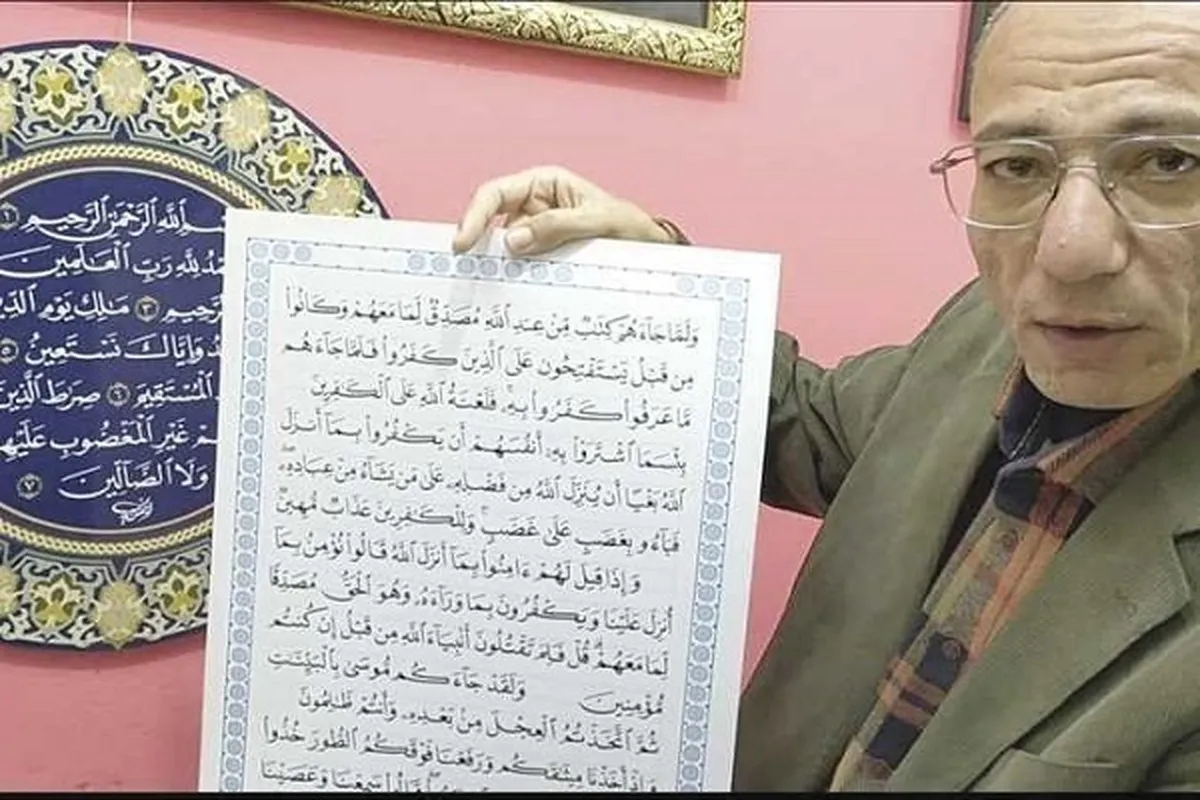 ـمِ ٱللَّهِ ٱلرَّحْمَٰنِ ٱلرَّحِيمِ ١
ـمْدُ لِلَّهِ رَبِّ ٱلْعَٰلَمِينَ
ٱلرَّحِيمِ ٣ مَٰلِكِ يَوْمِ ٱلدِّيـ
ـدُ وَإِيَّاكَ نَسْتَعِينُ ٥
ٱلْمُسْتَقِيمَ ٦ صِرَٰطَ ٱلَّذِينَ
ـمْ غَيْرِ ٱلْمَغْضُوبِ عَلَيْهِـ
وَلَا ٱلضَّآلِّينَ ٧
وَلَمَّا جَآءَهُمْ كِتَٰبٌ مِّنْ عِندِ ٱللَّهِ مُصَدِّقٌ لِّمَا مَعَهُمْ وَكَانُوا۟
مِن قَبْلُ يَسْتَفْتِحُونَ عَلَى ٱلَّذِينَ كَفَرُوا۟ فَلَمَّا جَآءَهُم
مَّا عَرَفُوا۟ كَفَرُوا۟ بِهِۦ فَلَعْنَةُ ٱللَّهِ عَلَى ٱلْكَٰفِرِينَ
بِئْسَمَا ٱشْتَرَوْا۟ بِهِۦٓ أَنفُسَهُمْ أَن يَكْفُرُوا۟ بِمَآ أَنزَلَ
ٱللَّهُ بَغْيًا أَن يُنَزِّلَ ٱللَّهُ مِن فَضْلِهِۦ عَلَىٰ مَن يَشَآءُ مِنْ عِبَادِهِۦ
فَبَآءُو بِغَضَبٍ عَلَىٰ غَضَبٍ وَلِلْكَٰفِرِينَ عَذَابٌ مُّهِينٌ
وَإِذَا قِيلَ لَهُمْ ءَامِنُوا۟ بِمَآ أَنزَلَ ٱللَّهُ قَالُوا۟ نُؤْمِنُ بِمَآ
أُنزِلَ عَلَيْنَا وَيَكْفُرُونَ بِمَا وَرَآءَهُۥ وَهُوَ ٱلْحَقُّ مُصَدِّقًا
لِّمَا مَعَهُمْ قُلْ فَلِمَ تَقْتُلُونَ أَنۢبِيَآءَ ٱللَّهِ مِن قَبْلُ إِن كُنتُم
مُّؤْمِنِينَ وَلَقَدْ جَآءَكُم مُّوسَىٰ بِٱلْبَيِّنَٰتِ
ثُمَّ ٱتَّخَذْتُمُ ٱلْعِجْلَ مِنۢ بَعْدِهِۦ وَأَنتُمْ ظَٰلِمُونَ
وَإِذْ أَخَذْنَا مِيثَٰقَكُمْ وَرَفَعْنَا فَوْقَكُمُ ٱلطُّورَ خُذُوا۟
قَالُوا۟ سَمِعْنَا وَعَصَيْنَا